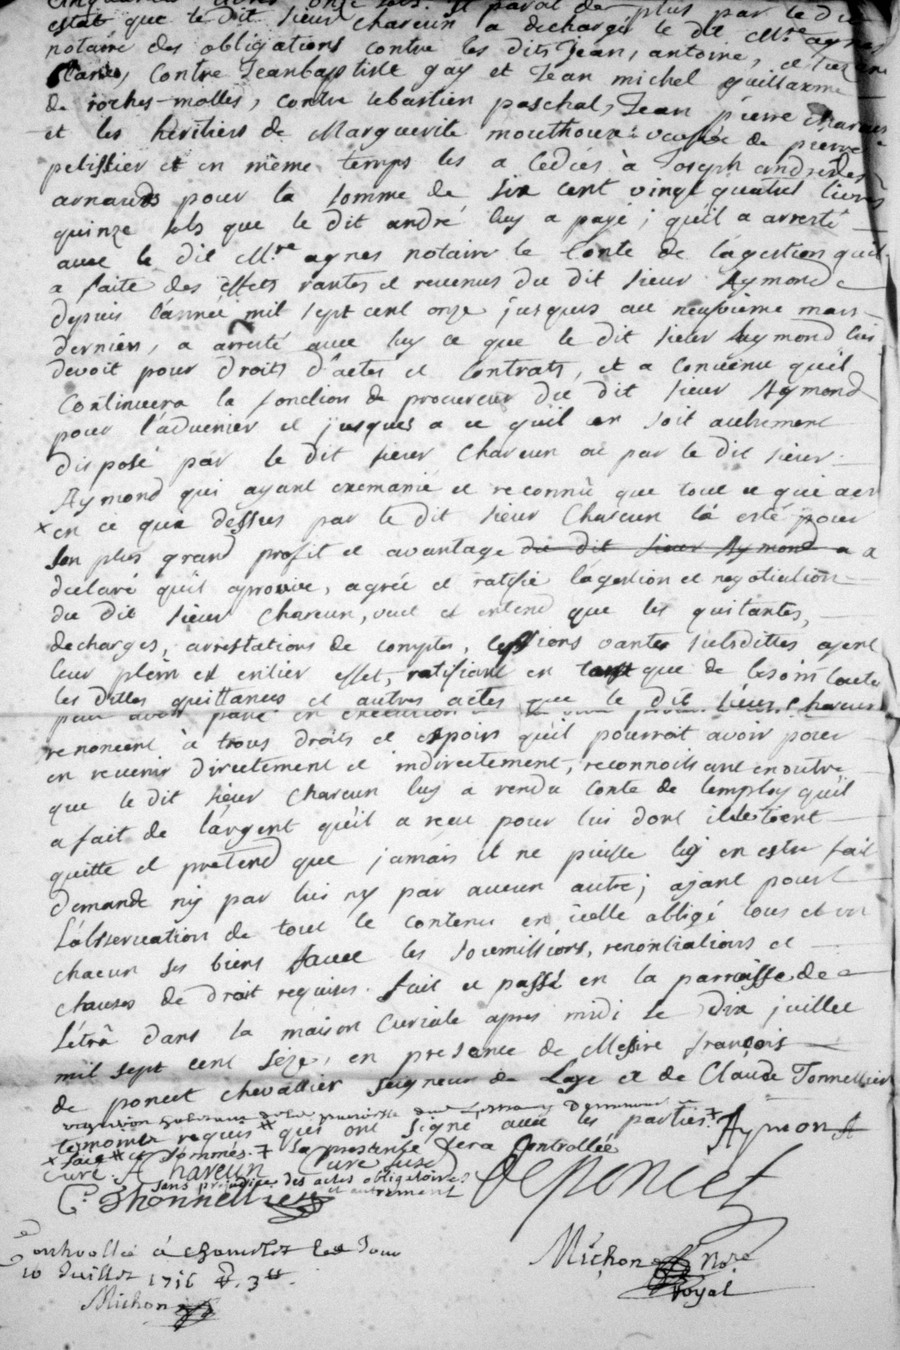 estat que le dit sieur chareun a dechargé le dit Mre agnes
notaire des obligations contre les dits Jean, antoine, et
contre Jeanbaptiste gay et Jean michel guillaume
de roches-molles, contre sebastien paschal, Jean pierre chareun
et les hèritiers de Marguerite mouthoux veufve de pierre
pelissier et en même temps les a cedées à Joseph andré des
arnauds pour la somme de six cent vingt quatre livres
quinze sols que le dit andré luy a payé; qu'il a arresté
avec le dit Mre agnes notaire le Conte de la gestion quil
a faite des effets rantes et revenus du dit sieur Aymond
depuis l'année mil sept cent onze jusques au neufvieme mars
derniers, a arresté avec luy ce que le dit sieur Aymond lui
devoit pour droits d'actes et contrats, et a convenu qu'il
Continuera la fonction de procureur du dit sieur Aymond
pour l'advenier et jusques a ce qu'il en soit autrement
disposé par le dit sieur Chareun ou par le dit sieur
Aymond qui ayant exemanié et reconnû que tout ce qui a
x en ce que dessus par le dit sieur Chareun la esté pour
son plus grand profit et avantage du dit sieur Aymond a a
declaré qu'il aprouve, agrée et ratifie la gestion et negotiation
du dit sieur Chareun, veut et entend que les quitantes,
decharges, arrestations de comptes, cessions vantes susdittes ayent
leur plein et entier effet, ratifiant en tant que de besoin toute
les dittes quittances et autres actes que le dit sieur Chareun
peut avoir passé en execution
renoncent à tous droits et espoirs qu'il pourroit avoir pour
en revenir directement et indirectement, reconnoissant enoutre
que le dit sieur Chareun luy a rendu conte de l'employ qu'il
a fait de l'argent qu'il a receu pour lui dont il le tient
quitte et pretend que jamais il ne puisse luy en estre fait
demande ny par lui ny par aucun autre; ajant pour
L'observation de tout le contenu en icelle obligé tous et un
chacun ses biens avec les soumissions, renontiations et
clauses de droit requises. fait et passé en la parroisse de
L'étrâ dans la maison Curiale apres midi le dix juillet
mil sept cent sèze, en presance de Mesire françois
de poncet chevallier seigneur de Laye et de Claude Tonnellier
temoins requis qui ont signé avec les parties. Aymond
x fait sommés. La presente sera Controllée
Chareun Curé susd
sans prejudice des actes obligatoires et autrement
C. Thonnellier Deponcet
Conhrollé à Chamrlot Led Jour
10 Juillet 1716 R. 3tt.
Michon
Michon Nore
Royal